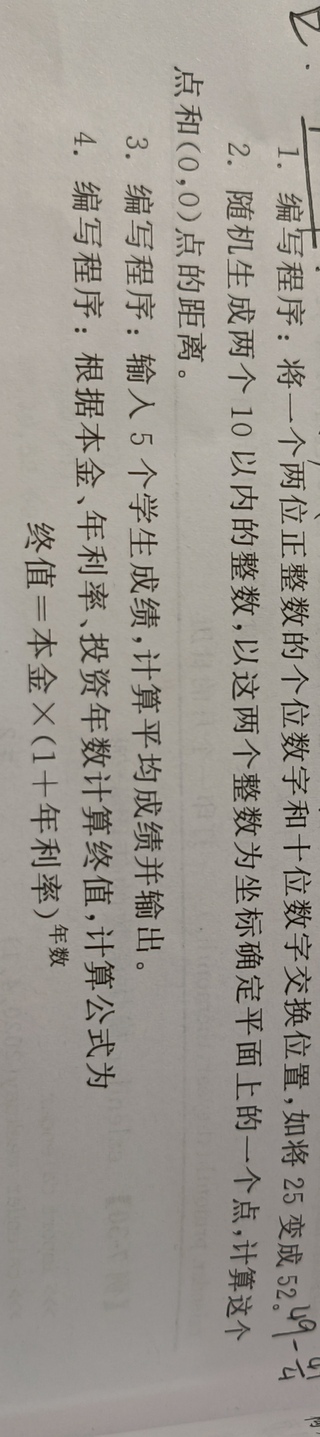 1. 编写程序：将一个两位正整数的个位数字和十位数字交换位置，如将 25 变成 52。
2. 随机生成两个 10 以内的整数，以这两个整数为坐标确定平面上的一个点，计算这个
点和(0,0)点的距离。
3. 编写程序：输入 5 个学生成绩，计算平均成绩并输出。
4. 编写程序：根据本金、年利率、投资年数计算终值，计算公式为
终值＝本金×(1＋年利率)^年数